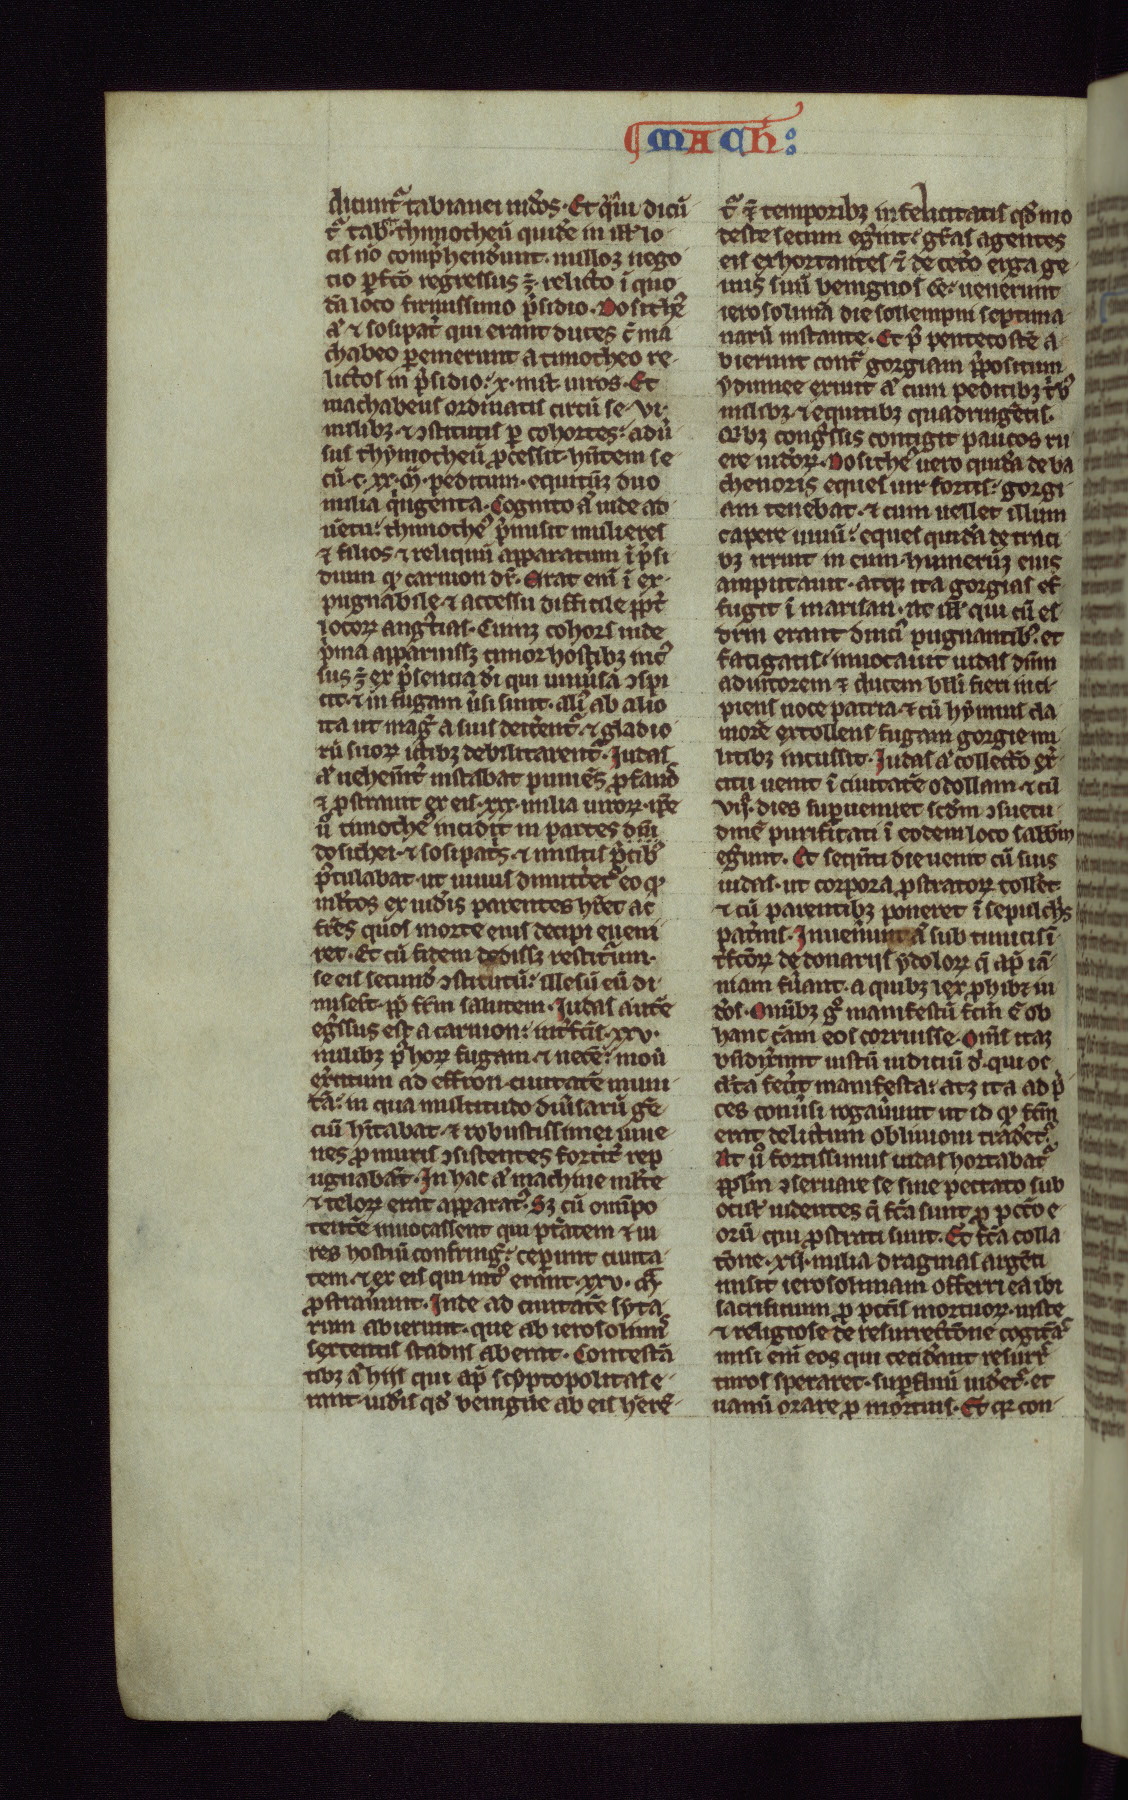 MACH:
dicunt᷑ tabianei iudeos. Et q̇ᵢui dicū
t᷑ tab. thymotheū quidē in ill̓ lo
cis nō comp̓henderunt. nulloꝫ nego
cio ꝑfc̄o regressus ē. relicto ī quo
dā loco firmissimo p̓sidio. Dosithꝰ
aͥ ⁊ sosipat̓ qui erant duces cͫ ma
chabeo ꝑemerunt a timotheo re-
lictos in p̓sidio: .x. mil̓ uiros. Et
machabeus ordinatis circū se .vi.
milibꝫ. ⁊ ꝯstitutis ꝑ cohortes: aduͥ
sus thymotheū ꝓcessit. hn̄tem se
cū .c.xx. m̄. peditum. equitūꝫ duo
milia q̇ngenta. Cognito aͥ iude ad
uētu: thimothꝰ p̓misit mulieres
⁊ filios ⁊ reliquū apparatum ī p̓si
dium qͦ carnion dr̄. Erat enī ī ex-
pugnabile. ⁊ accessu difficile ꝓpt̓
locoꝝ angͥtias. Cumꝫ cohors iude
p̓ma apparuissꝫ timor hostibꝫ incͥ
sus ē. ex p̓sencia dī qui uniuͥsa ꝯspi
cit. ⁊ in fugam uͥsi sunt. aliꝰ ab alio
ita ut magͥ a suis deicerent᷑. ⁊ gladio
rū suoꝝ ictibꝫ debilitarent᷑. Judas
aͥ uehement̓ instabat puniēs ꝓfanōs
⁊ ꝓstrauit ex eis .xxx. milia uiroꝝ. ip̄e
uͦ timothꝰ incidit in partes dm̄
dosichei. ⁊ sosipat̓s. ⁊ multis p̓cibꝰ
p̓tulabat. ut uiuus dimitteret᷑ eo qͦ
ml̓tos ex iudeis parentes hr̄et ac
fr̄es quos morte eius decipi eueni
ret. Et cū fidem dedissꝫ restiturum
se eis secundū ꝯstitutū: illesū eū di
miserūt. ꝓp̓ fr̄m salutem. Judas autē
egͥssus est a carnion: int̓fc̄is .xxv.
milibꝫ. p̓ hoꝝ fugam. ⁊ necē: mouͥ
exc̓itum ad effron. ciuitatē muni
tā: in qua multitudo diuͥsarū gē
ciū hītabat. ⁊ robustissimei iuue
nes ꝓ muris ꝯsistentes fortit̓ rep
ugnabāt. In hac aͥ machine ml̓te
⁊ teloꝝ erat apparat᷑. Sꝫ cū om̄ipo
tentē inuocassent qui ptātem ⁊ ui
res hostiū confringͥ: ceperunt ciuita
tem. ⁊ ex eis qui intͥ erant .xxv. m̄
ꝓstrauerunt. Inde ad ciuitatē syta
rum abierunt. que ab ierosolimis
sexcentis stadiis aberat. Contestā
tibꝫ aͥ hiis qui apͩ scyptopolitas e-
rant. iudeis qd̓ benigne ab eis hr̄ēt᷑-
t᷑ ⁊ ē temporibꝫ infelicitatis qd̓ mo
deste secum egerint: gr̄as agentes
eis exhortantes ⁊ de cet̓o erga ge
nus suū benignos ēē: uenerunt
ierosolimā die sollempni septima
narū instante. Et pꝰ pentecostē a-
bierunt cont᷑ gorgiam p̓positum
ydumee exiuit aͥ cum peditibꝫ tͥbꝰ
milibꝫ. ⁊ equitibꝫ quadringētis.
Quibꝫ congͥssis contigit paucos ru
ere iudeoꝝ. Dosithꝰ uero quidā de ba
chenoris eques uir fortis: gorgi-
am tenebat. ⁊ cum uellet illum
capere uiuū: eques quidā de traci
bꝫ irruit in eum. humerūꝫ eius
amputauit. atqꝫ ita gorgias ef
fugit ī marisan. At ill̓ qui cū es
drin erant diuciꝰ pugnantibꝰ. et
fatigatis: inuocauit iudas dn̄m
adiutorem ⁊ ducem belli fieri inci-
piens uoce patria. ⁊ cū hymnis cla
morē extollens fugam gorgie mi
litibꝫ incussit. Judas aͥ collecto exͥ
citu uenit ī ciuitatē odollam. ⁊ cū
viiͣ. dies superueniret scd̄m ꝯsuetu
dinē purificati ī eodem loco sabbm̄
egerunt. Et sequēti die uenit cū suis
iudas. ut corpora ꝓstratoꝝ tolleret
⁊ cū parentibꝫ poneret ī sepulchͥs
pat̓nis. Inuenerunt aͥ sub tunicis ī
t̓fc̄oꝝ de donariis ydoloꝝ q̄ apͩ iā-
niam fuerant. a quibꝫ lex ꝓhibꝫ iu
deos. Omībꝫ gͦ manifestū fcm̄ ē ob
hanc cām eos corruisse. Om̄s itaꝫ
bn̄dixerunt iustū iudiciū dī. qui oc
culta fecerat manifesta: atꝫ ita ad p̓
ces conuͥsi rogauerunt ut id qͦ fcm̄
erat delictum obliuioni traderet᷑.
At uͦ fortissimus iudas hortabat᷑
ppl̄m ꝯseruare se sine peccato sub
ocul̓ uidentes q̄ fc̄a sunt ꝓ pcc̄o e-
orū qui ꝓstrati sunt. Et fc̄a colla
tōne .xii. milia dragmas argēti
misit ierosolimam offerri ea ibi
sacrificium ꝓ pcc̄is mortuoꝝ. iuste
⁊ religiose de resurrectōne cogitās
nisi enī eos qui ceciderant resurrͥ
turos speraret. superfluū uideret᷑. et
uanū orare ꝓ mortuis. Et qꝛ con-